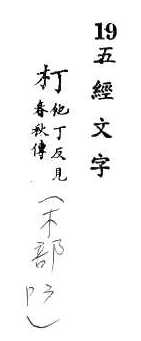 19五經文字
朾 他丁反見
春秋傳
(木部 P3)